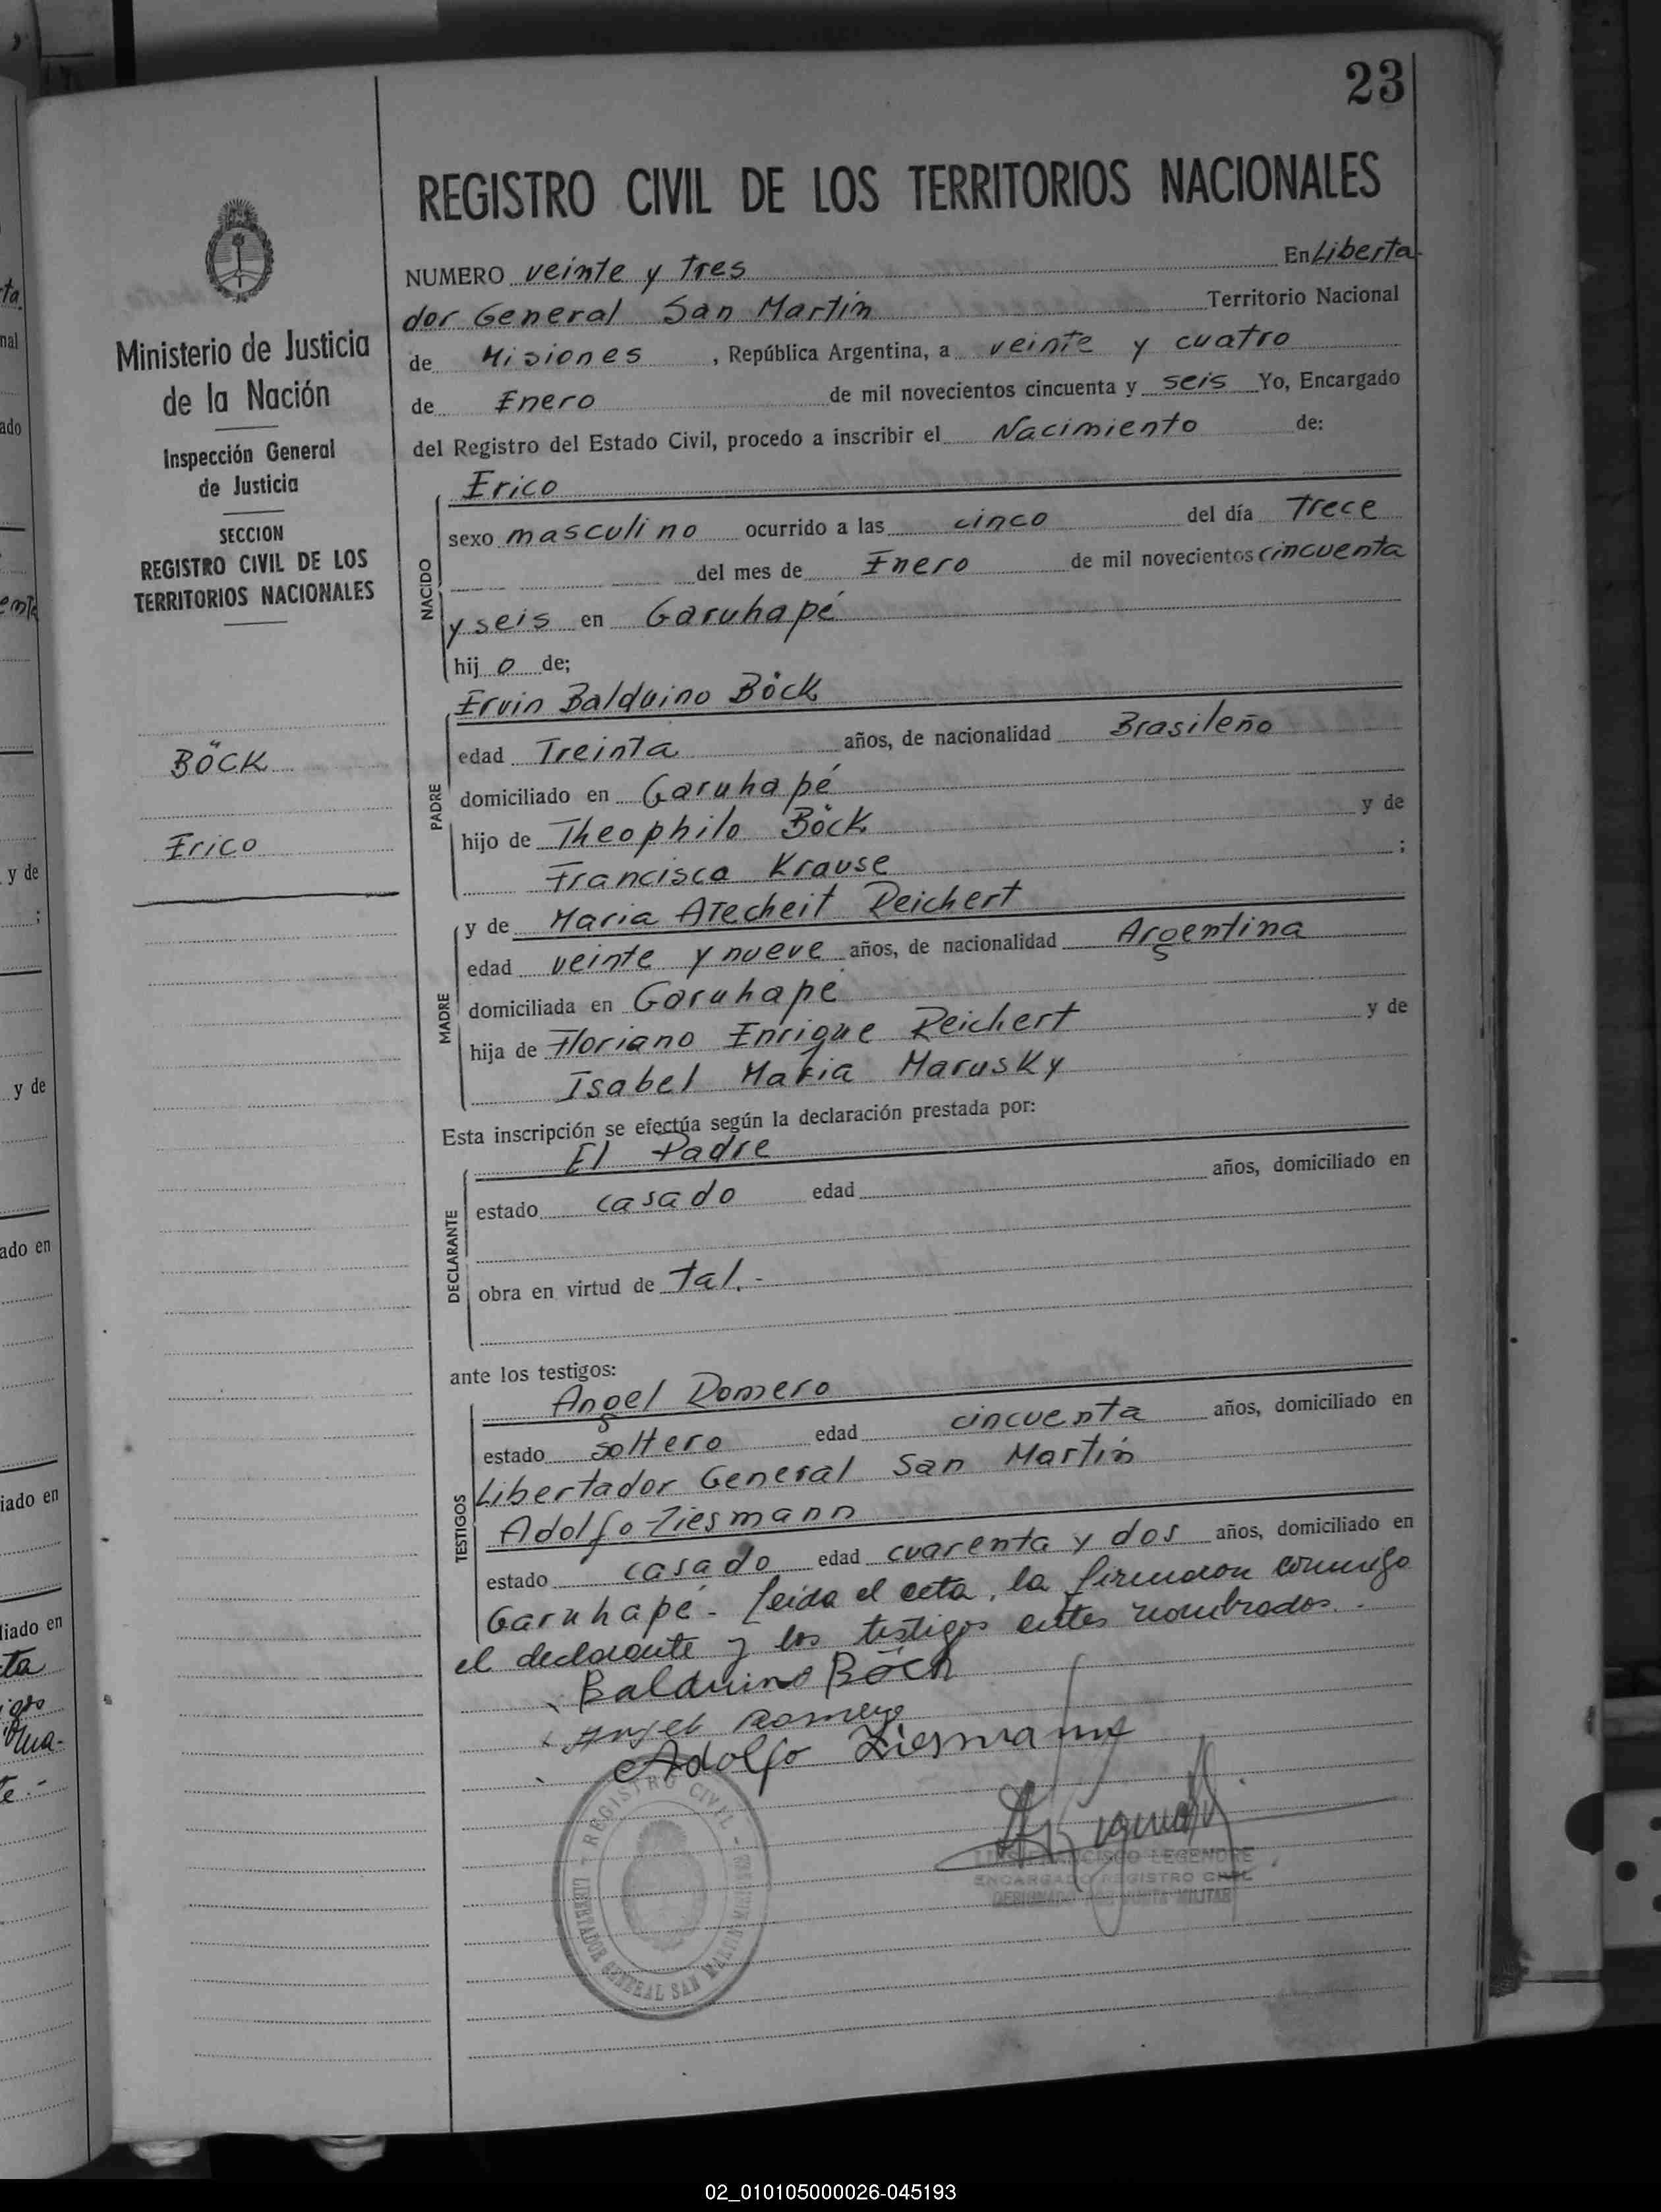 23
REGISTRO CIVIL DE LOS TERRITORIOS NACIONALES
Ministerio de Justicia
de la Nación
Inspección General
de Justicia
SECCION
REGISTRO CIVIL DE LOS
TERRITORIOS NACIONALES
BÖCK
Erico
NUMERO veinte y Tres En Liberta-
dor General San Martín Territorio Nacional
de Misiones, República Argentina, a veinte y cuatro
de Enero de mil novecientos cincuenta y seis Yo, Encargado
del Registro del Estado Civil, procedo a inscribir el Nacimiento de:
Erico
NACIDO
sexo masculino ocurrido a las cinco del día Trece
del mes de Enero de mil novecientos cincuenta
y seis en Garuhapé
hijo de;
Ervin Balduino Böck
PADRE
edad Treinta años, de nacionalidad Brasileño
domiciliado en Garuhapé
hijo de Theophilo Böck y de
Francisca Krause ;
y de Maria ATecheit Reichert
MADRE
edad veinte y nueve años, de nacionalidad Argentina
domiciliada en Garuhapé
hija de Floriano Enrique Reichert y de
Isabel Maria Marusky
Esta inscripción se efectúa según la declaración prestada por:
El Padre
DECLARANTE
estado casado edad años, domiciliado en
obra en virtud de Tal.-
ante los testigos:
Angel Romero
TESTIGOS
estado soltero edad cincuenta años, domiciliado en
Libertador General San Martín
Adolfo Ziesmann
estado casado edad cuarenta y dos años, domiciliado en
Garuhapé.- Leida el acta, la firmaron conmigo
el declarante y los testigos antes nombrados.-
Balduino Böck
Angel Romero
Adolfo Ziesmann
REGISTRO CIVIL
LIBERTADOR GENERAL SAN MARTIN
LUIS FRANCISCO LEGENDRE
ENCARGADO REGISTRO CIVIL
02_010105000026-045193